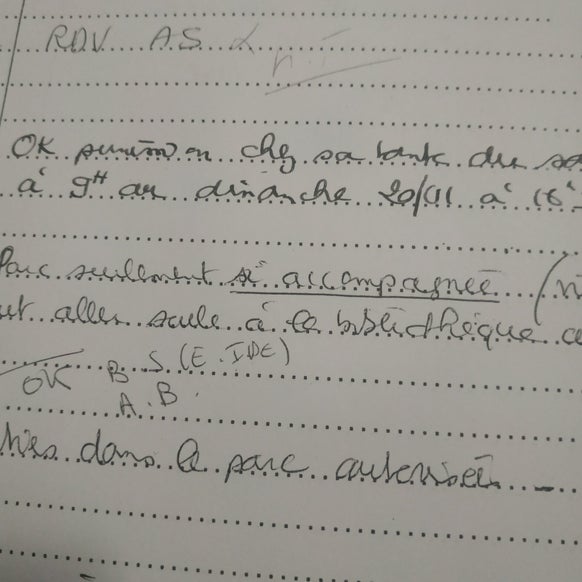 RDV A.S
OK permission chez sa tante du sa
à 9H au dimanche 20/11 à 18h
Parc seulement si accompagnée (n
ut aller seule à la bibliothèque
OK B S (E. IDE)
A.B.
dans le parc autorisées